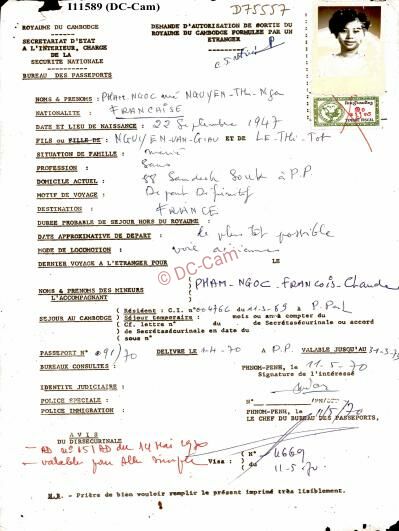 I11589 (DC-Cam)
D75557
ROYAUME DU CAMBODGE
SECRETARIAT D'ETAT
A L'INTERIEUR, CHARGE
DE LA
SECURITE NATIONALE
BUREAU DES PASSEPORTS
DEMANDE D'AUTORISATION DE SORTIE DU
ROYAUME DU CAMBODGE FORMULEE PAR UN
ETRANGER
NOMS & PRENOMS : PHAM-NGOC née NGUYEN-Thi-Nga
NATIONALITE : FRANCAISE
DATE ET LIEU DE NAISSANCE : 22 Septembre 1947
FILS ou FILLE DE : NGUYEN-VAN-GIAU ET DE LE-Thi-Tot
SITUATION DE FAMILLE : mariée
PROFESSION : Sans
DOMICILE ACTUEL : 88 Samdech Souk à P.P
MOTIF DE VOYAGE : Départ Définitif
DESTINATION : FRANCE
DUREE PROBABLE DE SEJOUR HORS DU ROYAUME :
DATE APPROXIMATIVE DE DEPART : Le plus tôt possible
MODE DE LOCOMOTION : voie aérienne
DERNIER VOYAGE A L'ETRANGER POUR LE
© DC-Cam
NOMS & PRENOMS DES MINEURS
L'ACCOMPAGNANT
PHAM-NGOC-FRANCOIS-Claude
SEJOUR AU CAMBODGE
Résident : C.I. n° du 11-3-69 à
Séjour temporaire : mois ou ans à compter du
Cf. lettre n° du de Secrétsécurinale ou accord
de Secrétsécurinale en date du
sous n°
PASSEPORT N° 91/70 DELIVRE LE 1-4-70 à P.P VALABLE JUSQU'AU
BUREAUX CONSULTES :
PHNOM-PENH, le 11-5-70
Signature de l'intéressé
IDENTITE JUDICIAIRE :
POLICE SPECIALE :
POLICE IMMIGRATION :
N°
PHNOM-PENH, le 11/5/70
LE CHEF DU BUREAU DES PASSEPORTS,
AVIS
DU DIRSECURINALE
- AD n° 15/AD du 14 Mai 1970
- valable pour Aller simple
Visa :
( N° 4669
( du 11-5-70
N.B. - Prière de bien vouloir remplir le présent imprimé très lisiblement.